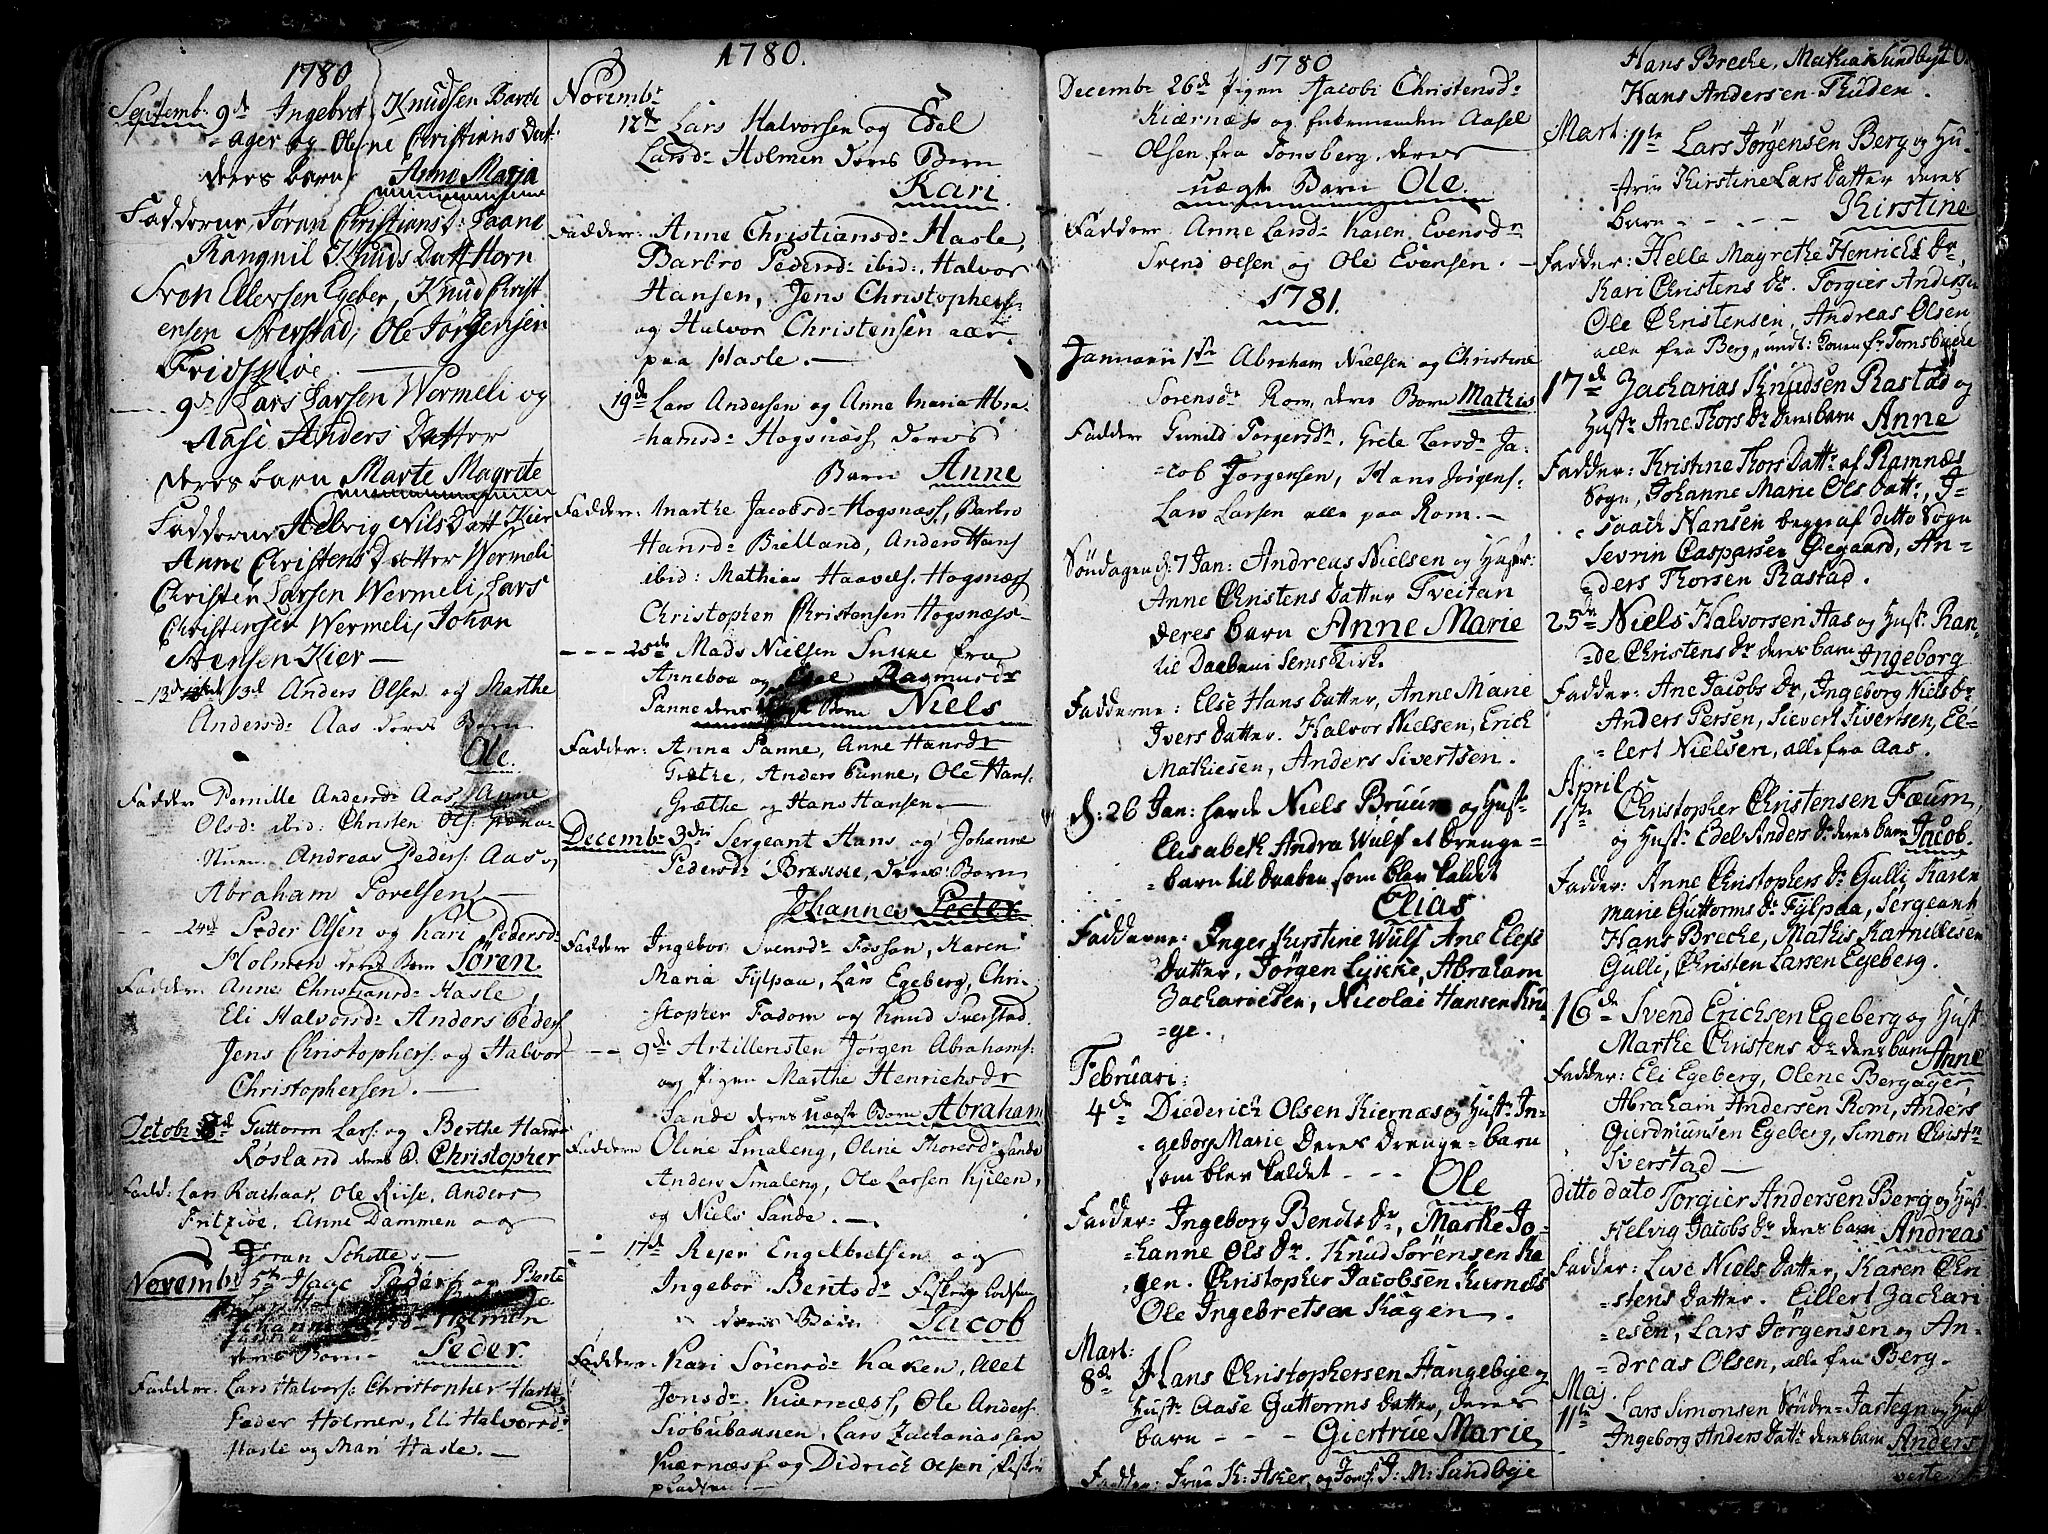 1780
Septemb: 9de Ingebret Knudsen Barch
ager og Olene Christians Dat:
deres barn Anne Maria
Fadderne, Joran Christiansd: Paane
Rangnil Knuds Datt Horn
Sven Ellersen Egeber, Knud Christ
ensen Sverstad, Ole Jörgensen
Fridsiöe.
9de Lars Larsen Wermeli og
Aase Anders Datter
deres barn Marte Magrete
Fadderne Helvig Nils Datt Kier
Anne Christens Datter Wermeli
Christen Larsen Wermeli, Lars
Christensen Wermeli, Johan
Stensen Kier
13de Anders Olsen og Marthe
Andersd: Aas deres Barn
Ole.
Fadder Pernille Andersd: Aas, Anne
Olsd: ibid: Christen Ols:
Andreas Peders: Aas,
Abraham Povelsen
24de Peder Olsen og Kari Pedersd:
Holmen deres Barn Sören.
Faddere Anne Christiansd: Hasle,
Eli Halvorsd: Anders Peders:
Jens Christophers: og Halvor
Christophersen.
Octobr 8de Guttorm Lars: og Berthe Hansd:
Røsland deres B. Christopher
Fadd: Lars Rachaas, Ole Riise, Anders
Fritzöe, Anne Dammen og
Joran Schotte
Novembr 5te Isaac Peders: og Berte
Holmen
deres Barn Peder.
Fadder: Lars Halvors: Christopher Hasle,
Peder Holmen, Eli Halvorsd:
Hasle og Mari Hasle.
1780.
Novembr
12te Lars Halvorsen og Edel
Larsd: Holmen deres Barn
Kari
Fadder: Anne Christiansd: Hasle,
Barbro Pedersd: ibid: Halvor
Hansen, Jens Christophers:
og Halvor Christensen
paa Hasle.
19de Lars Andersen og Anne Maria Abra-
hamsd: Hogsnæss deres
Barn Anne
Fadder: Marthe Jacobsd: Hogsnæss, Barbro
Hansd: Bielland, Anders Hans:
ibid: Mathias Haavels: Hogsnæss
Christophen Christensen Hogsnæss
25de Mads Nielsen Sunne fra
Anneboa og Edel Rasmusdr
Panne deres Barn Niels
Fadder: Anna Panne, Anne Hansdr
Græthe, Anders Panne, Ole Hans:
Græthe og Hans Hansen.
Decembr 3die Sergeant Hans og Johanne
Pedersd: Brekke, deres Barn
Johannes Peder
Fadder Ingebor Svensd: Fossan, Karen
Maria Fylpaa, Lars Egeberg, Chri-
stopher Fadom og Knud Sverstad.
9de Artilleristen Jörgen Abrahams:
og Pigen Marthe Henrichsdr
Sande deres uægte Barn Abraham
Faddere Oline Smaleng, Oline Thoresdr Sande
Anders Smaleng, Ole Larsen Kjilen,
og Niels Sande.
17de Rejer Engelbretsen og
Ingebor Bentsdr
deres Barn Jacob
Faddere. Kari Sörensd: Haken, Alet
Jonsdr Kiærnæss, Ole Anders:
Siöbubakken, Lars Zachariassen
Kiærnæss og Didrich Olsen
1780
Decembr 26de Pigen Jacobi Christensd:
Kiærnæs og Aasel
Olsen fra Tonsberg, deres
uægte Barn Ole.
Faddere Anne Larsd: Karen Evensdr
Svend Olsen og Ole Evensen.
1781.
Januarii 1ste Abraham Nielsen og Christine
Sorensdr Rom, deres Barn Mathis
Fadder Gunild Torgersdr, Grete Larsdr Ja-
cob Jorgensen, Hans Jörgens:
Lars Larsen alle paa Rom.
Söndagen d: 7 Jan: Andreas Nielsen og Hustr:
Anne Christens Datter Tveitan
deres barn Anne Marie
til Daaben i Sems Kirk.
Fadderne: Else Hans Datter, Anne Marie
Ivers Datter. Halvor Nielsen, Erich
Mathiesen, Anders Sivertsen.
d: 26 Jan: havde Niels Bruun og Hust:
Elisabeth Andra Wulf et Drenge-
barn til Daaben som blev kaldet
Elias
Fadderne: Inger Kirstine Wulf Ane Elefs
Datter, Jörgen Lykke, Abraham
Zachariesen, Nicolai Hansen Krü-
ge.
Februari:
4de Diederich Olsen Kiernæs og Hustr In-
geborg Marie deres Drenge-barn
som blev kaldet - - - Ole
Fadder: Ingeborg Bends Dr, Marthe Jo-
hanne Ols Dr. Knud Sörensen Ha
gen. Christopher Jacobsen Kiernes
Ole Ingebretsen Hagen.
Mart:
8de Hans Christophersen Haugebye og
Hustr Aase Guttorms Datter, deres
barn - - - Giertrue Marie
Fadder: Frue K: Asker, og Jomf. J: M: Sundbye
Hans Breche, Mathias Sundbye
Hans Andersen Thuden.
Mart: 11te Lars Jörgensen Berg og Hu-
strue Kirstine Lars Datter deres
barn - - - - Kirstine
Fadder: Helle Magrethe Henrichs Dr,
Kari Christens Dr. Torgier Andersen
Ole Christensen, Andreas Olsen
alle fra Berg, undt: Konen fr Tomsbakke
17de Zacharias Knudsen Rastad og
Hustr Ane Thors Dr deres barn Anne
Fadder: Kristine Thors Dattr af Ramnæs
Sogn, Johanne Marie Ols Dattr, I-
saach Hansen begge af ditto Sogn
Sevrin Caspersen Øegaard, An-
ders Thorsen Rastad.
25de Niels Halvorsen Aas og Hustr Ran-
de Christens Dr deres barn Ingeborg
Fadder: Ane Jacobs Dr, Ingeborg Niels Dr
Anders Persen, Sievert Sivertsen, El-
lert Nielsen, alle fra Aas.
April
1ste Christopher Christensen Fæum,
og Hustr Edel Anders Dr deres barn Jacob.
Fadder: Anne Christophers Dr Gulli, Karen
Marie Guttorms Dr Fylpaa, Sergeant
Hans Breche, Mathis Kamillesen
Gulli, Christen Larsen Egeberg.
16de Svend Erichsen Egeberg og Hustr
Marthe Christens Dr deres barn Anne
Fadder: Eli Egeberg, Olene Bergager,
Abraham Andersen Rom, Anders
Gierdmundsen Egeberg, Simon Christn
Sverstad
ditto dato Torgier Andersen Berg og Hust
Helvig Jacobs Dr deres barn Andreas
Fadder: Live Niels Datter, Karen Chri-
stens Datter. Eillert Zachari
esen, Lars Jörgensen og An-
dreas Olsen, alle fra Berg.
Maj.
11te Lars Simonsen Söndre-Jartegn og Hust
Ingeborg Anders Dattr deres barn Anders
verte